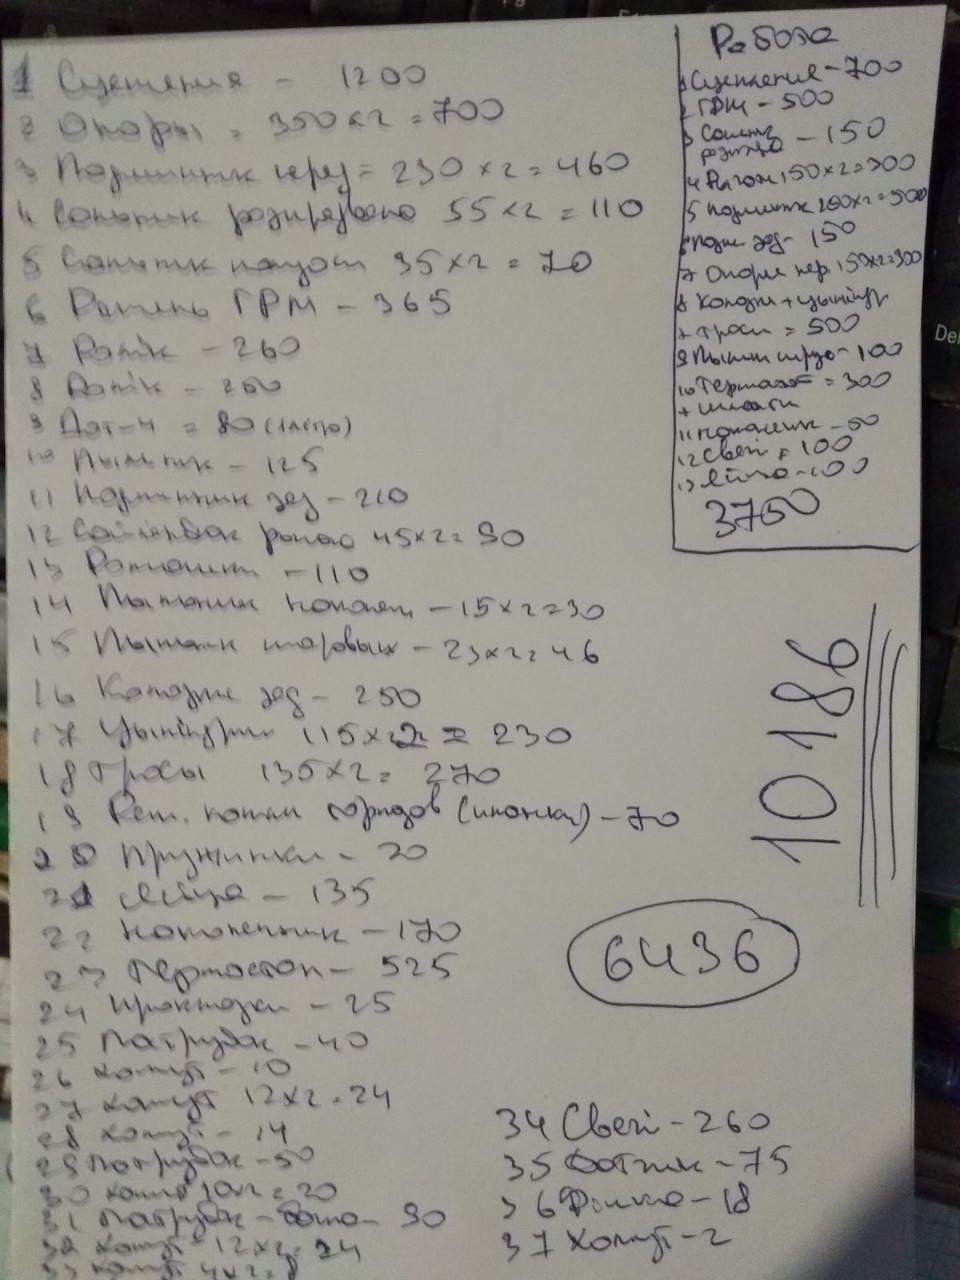 1 Сцепения - 1200
2 Опоры = 350 x 2 = 700
3 Подшипник перед = 230 x 2 = 460
4 55 x 2 = 110
5 35 x 2 = 70
6 Ремень ГРМ - 365
7 Ролік - 260
8 Ролік -
9 Дот-4 = 80
10 Пыльник - 125
11 Подшипник зад - 210
12 45 x 2 = 90
13 - 110
14 Пыльник - 15 x 2 = 30
15 Пыльник шаровых - 23 x 2 = 46
16 Колодки зад - 250
17 Цыліндри 115 x 2 = 230
18 Тросы 135 x 2 = 270
19 - 70
20 Пружинки - 20
21 - 135
22 Наконечник - 170
23 Термостат - 525
24 Прокладки - 25
25 Патрубок - 40
26 Хомут - 10
27 Хомут 12 x 2 = 24
28 Хомут - 14
29 Патрубок - 50
30 Хомут 10 x 2 = 20
31 Патрубок - - 90
32 Хомут 12 x 2 = 24
33 Хомут 4 x 2 = 8
34 Свечі - 260
35 Датчик - 75
36 Фишка - 18
37 Хомут - 2
Работа
1 Сцепление - 700
2 ГРМ - 500
3 - 150
4 150 x 2 = 300
5 Подшипник 250 x 2 = 500
6 Подш зад - 150
7 Опоры пер 150 x 2 = 300
8 Колодки + цыліндр
+ троси = 500
9 Пыльник - 100
10 Термостат = 300
+
11 Наконечник - 50
12 Свечі = 100
13 - 100
3750
10186
6436